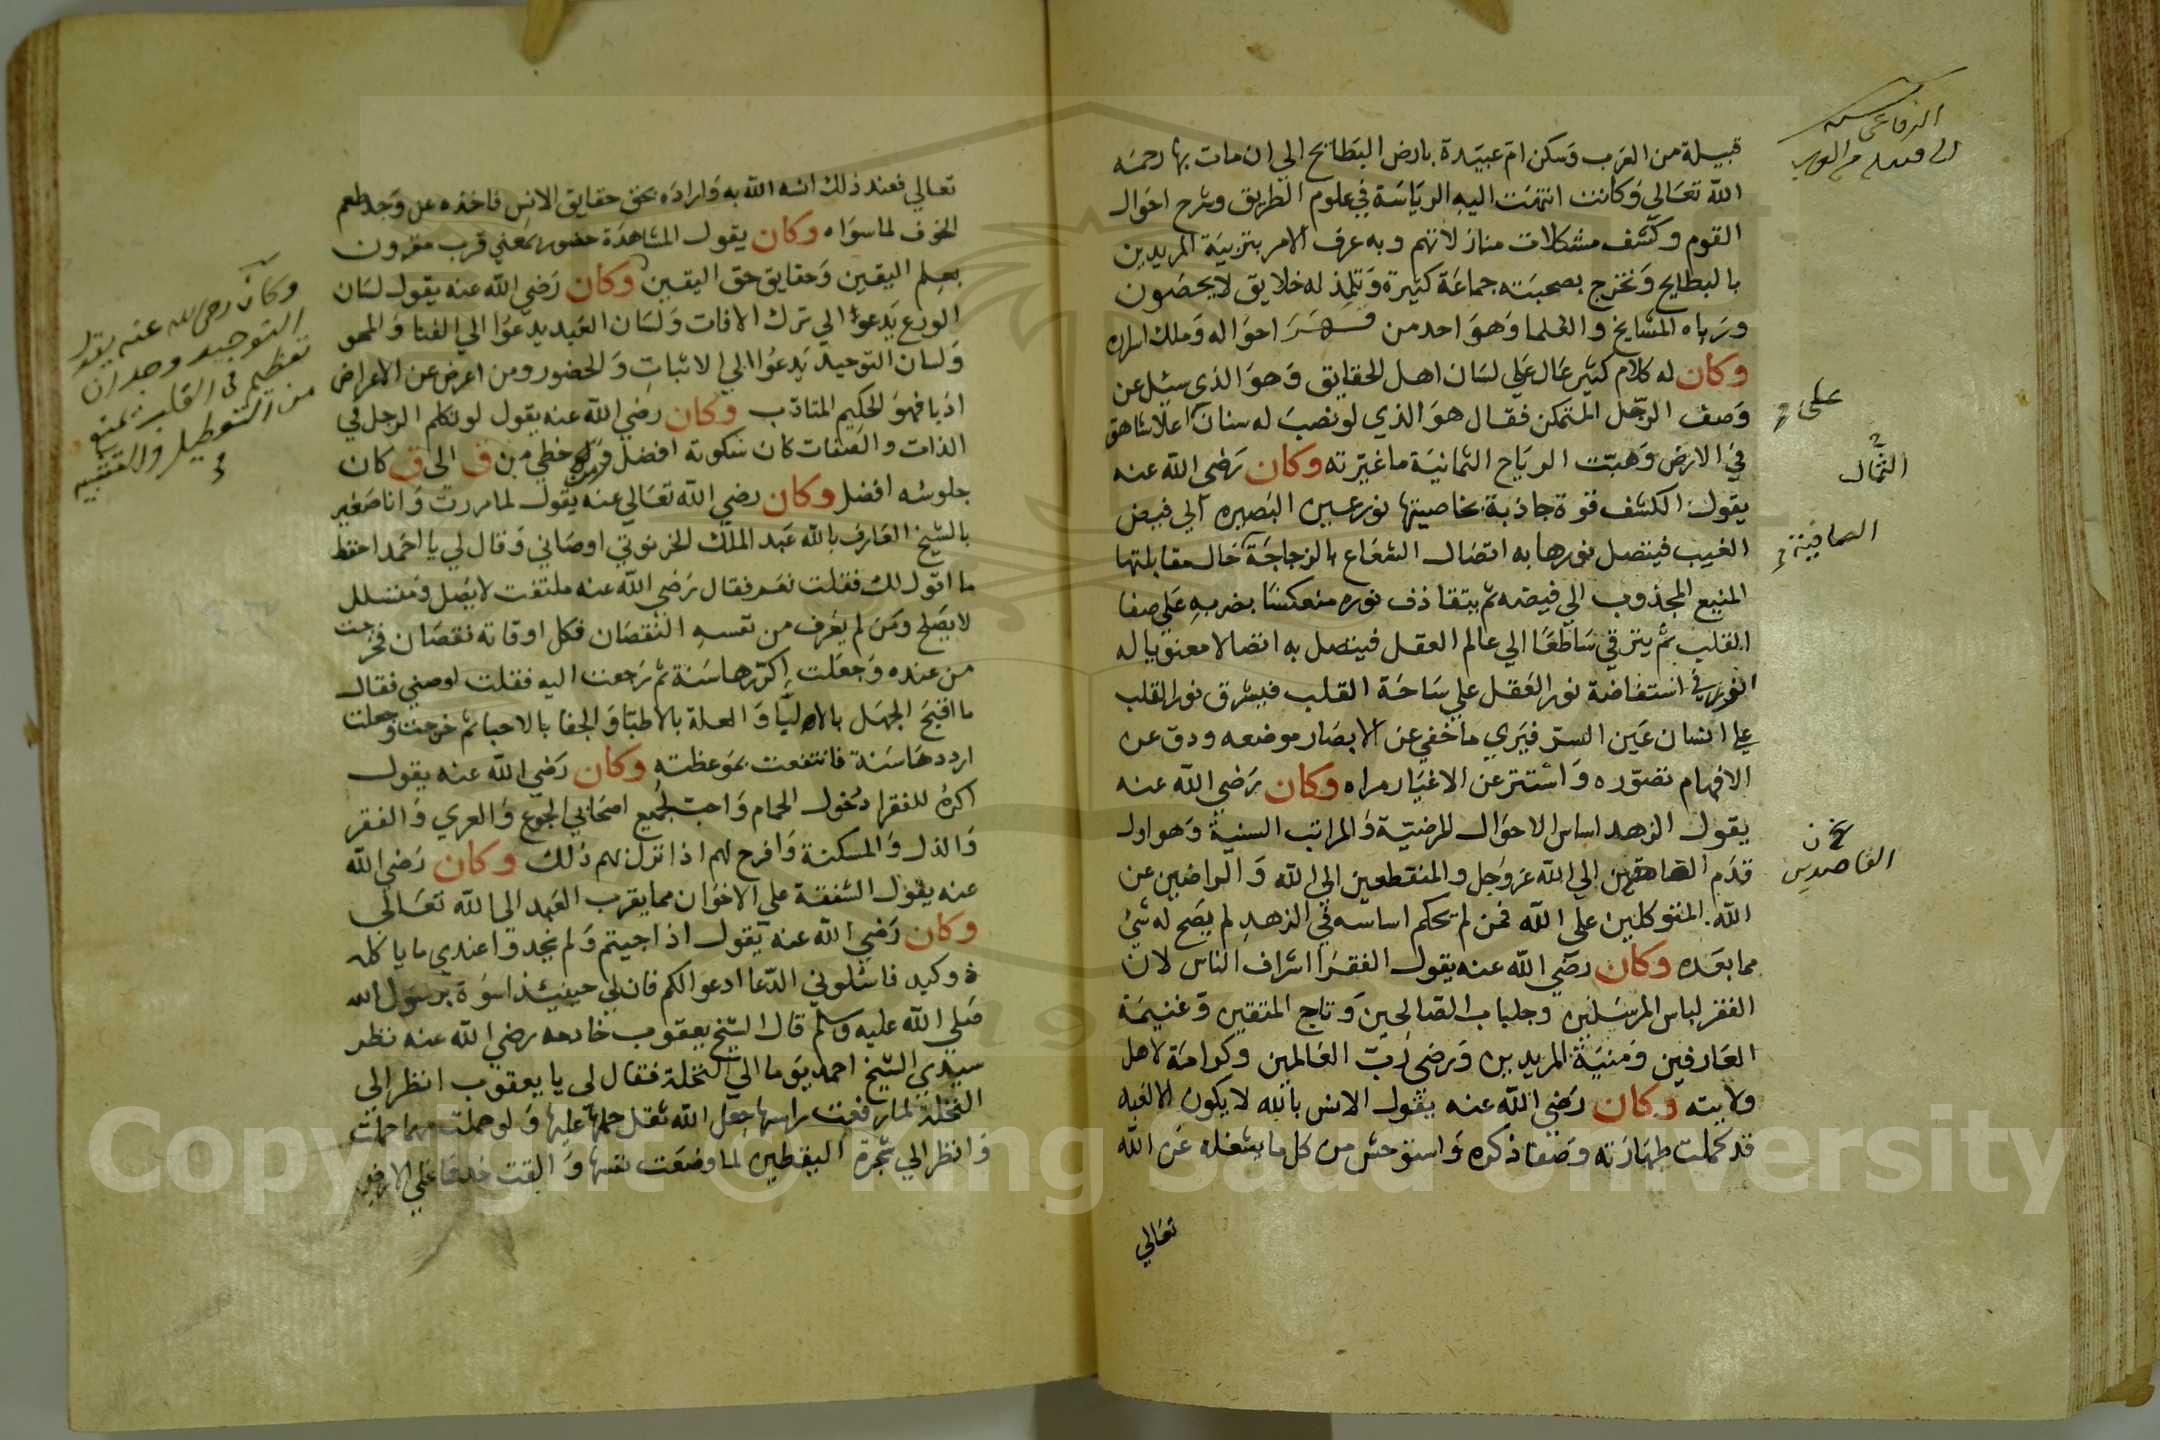 قبيلة من العرب وسكن ام عبيدة بارض البطايح الي ان مات بها رحمه
الله تعالي وكانت انتهت اليه الرياسة في علوم الطريق وشرح احوال
القوم وكشف مشكلات منازلاتهم وبه عرف الامر بتربية المريدين
بالبطايح وتخرج بصحبته جماعة كثيرة وتلمذ له خلايق لايحصون
ورباه المشايخ والعلما وهو احد من قهر احواله وملك اسراره
وكان له كلام كثير عال علي لسان اهل الحقايق وهو الذي سئل عن
وصف الرجل المتمكن فقال هو الذي لو نصب له سنان اعلا شاهق
في الارض وهبت الرياح الثمانية ما غيرته وكان رضي الله عنه
يقول الكشف قوة جاذبة بخاصيتها نور عين البصيره الي فيض
الغيب فيتصل نورها به اتصال الشعاع بالزجاجة حال مقابلتها
المنبع المجذوب الي فيضه ثم يتقاذف نوره منعكسا بضوبه علي صفا
القلب ثم يترقي ساطعا الي عالم العقل فيتصل به اتصالا معنويا له
اثر في استفاضة نور العقل علي ساحة القلب فيشرق نور القلب
علي انسان عين السر فيري ما خفي عن الابصار موضعه ودق عن
الافهام تصوره واستتر عن الاغيار مراه وكان رضي الله عنه
يقول الزهد اساس الاحوال المرضية والمراتب السنية وهو اول
قدم القاصدين الي الله عز وجل والمنقطعين الي الله والراضين عن
الله المتوكلين علي الله فمن لم يحكم اساسه في الزهد لم يصح له شئ
مما بعده وكان رضي الله عنه يقول الفقرا اشراف الناس لان
الفقر لباس المرسلين وجلباب الصالحين وتاج المتقين وغنيمة
العارفين ومنية المريدين ورضي رب العالمين وكرامة لاهل
ولايته وكان رضي الله عنه يقول الانس بالله لا يكون الا لعبد
قد كملت طهارته وصفا ذكره واستوحش من كل ما يشغله عن الله
تعالي
الرفاعي
علي
الشمال
الصافية
القاصدين
تعالي فعند ذلك انسه الله به واراده بحق حقايق الانس فاخذه عن وجد طعم
الخوف لما سواه وكان يقول المشاهدة حضور بمعني قرب مقرون
بعلم اليقين وحقايق حق اليقين وكان رضي الله عنه يقول لسان
الورع يدعوا الي ترك الافات ولسان التعبد يدعوا الي الفنا والمحو
ولسان التوحيد يدعوا الي الاثبات والحضور ومن اعرض عن الاعراض
ادبا فهو الحكيم المتادب وكان رضي الله عنه يقول لو تكلم الرجل في
الذات والصفات كان سكوته افضل ومن خطي من ق الى ق كان
جلوسه افضل وكان رضي الله تعالي عنه يقول لما مررت وانا صغير
بالشيخ العارف بالله عبد الملك الخرنوتي اوصاني وقال لي يا احمد احفظ
ما اقول لك فقلت نعم فقال رضي الله عنه ملتفت لا يصل ومتسلل
لا يصلح ومن لم يعرف من نفسه النقصان فكل اوقاته نقصان فخرجت
من عنده وجعلت اكررها سنة ثم رجعت اليه فقلت اوصني فقال
ما اقبح الجهل بالاوليا والعلة بالاطبا والجفا بالاحبا ثم خرجت وجعلت
ارددها سنة فانتفعت بموعظته وكان رضي الله عنه يقول
اكره للفقرا دخول الحمام واحب لجميع اصحابي الجوع والعري والفقر
والذل والمسكنة وافرح لهم اذا نزل بهم ذلك وكان رضي الله
عنه يقول الشفقة علي الاخوان مما يقرب العبد الى الله تعالى
وكان رضي الله عنه يقول اذا جيتم ولم تجدوا عندي ما ياكله
ذو كبد فاسئلوني الدعا ادعوا لكم فان لي حينئذ اسوة برسول الله
صلي الله عليه وسلم قال الشيخ يعقوب خادمه رضي الله عنه نظر
سيدي الشيخ احمد يوما الي النخلة فقال لي يا يعقوب انظر الى
النخلة لما رفعت راسها جعل الله ثقل حملها عليها ولو حملت مهما حملت
وانظر الي شجرة اليقطين لما وضعت نفسها والقت خدها علي الارض
وكان رضي الله عنه يقول
التوحيد وجدان
تعظيم في القلب يمنع
من التعطيل والتشبيه
Copyright © King Saud University